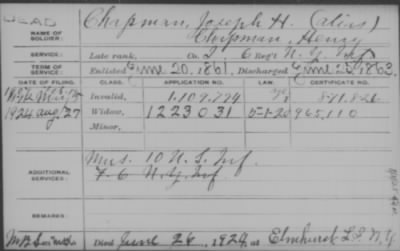 DEAD
NAME OF SOLDIER: Chapman, Joseph H. (alias)
Chipman, Henry
SERVICE: Late rank, Co. I, 6 Reg't N.Y. Inf
TERM OF SERVICE: Enlisted June 20, 1861, Discharged June 25, 1863.
DATE OF FILING. CLASS. APPLICATION NO. LAW. CERTIFICATE NO.
Invalid, 1.109.779 871.826
1924 Aug/27 Widow, 1223031 5-1-20 965,110
Minor,
ADDITIONAL SERVICES: Mus. 10 U.S. Inf.
F. 6 N.Y. Inf.
REMARKS:
Died June 26, 1924, at Elmhurst L.I. N.Y.